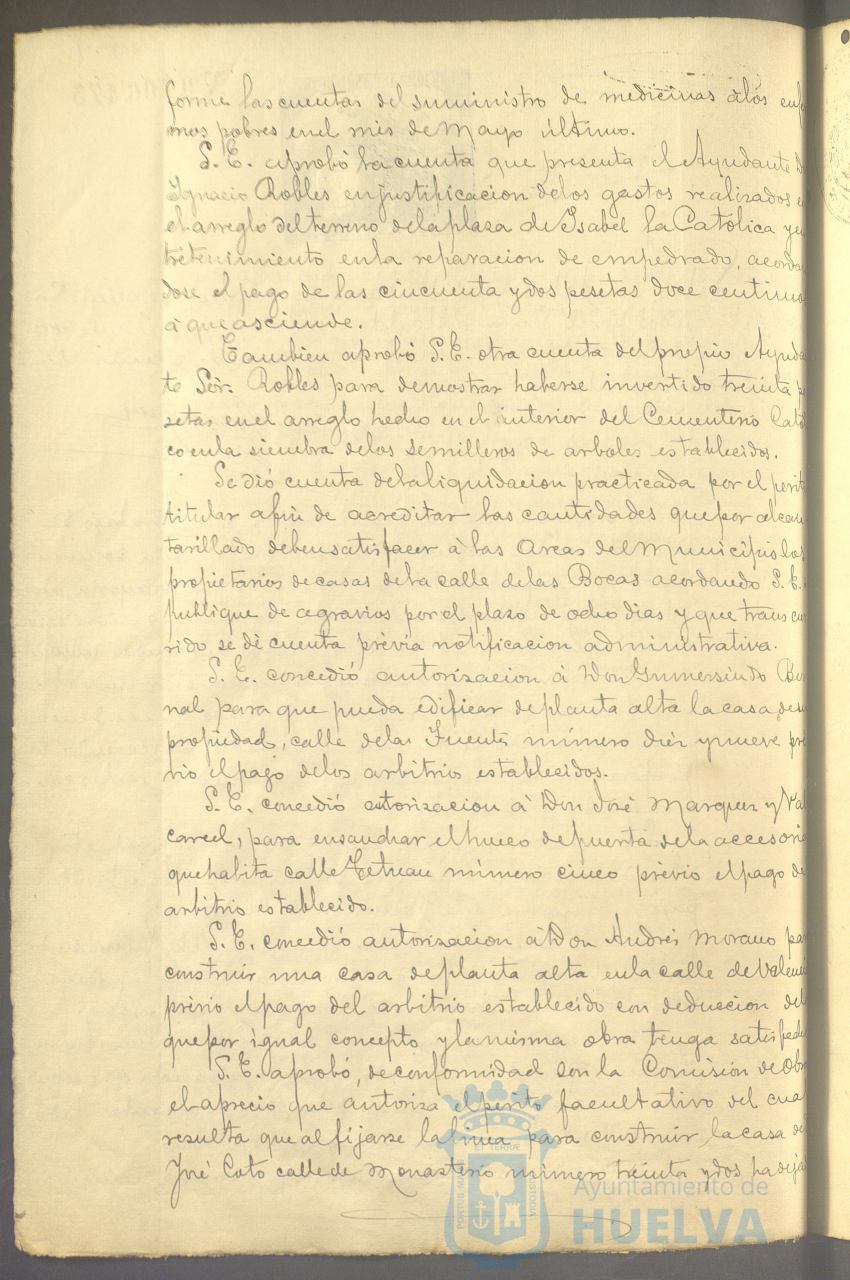 forme las cuentas del suministro de medicinas á los enfer
mos pobres en el mes de Mayo último.
S. E. aprobó la cuenta que presenta el Ayudante D
Ignacio Robles en justificacion de los gastos realizados e
el arreglo del terreno de la plaza de Ysabel la Católica y en
tretenimiento en la reparacion de empedrado, acorda
dose el pago de las cincuenta y dos pesetas doce centimo
á que asciende.
Tambien aprobó S. E. otra cuenta del propio Ayuda
te Sór. Robles para demostrar haberse invertido treinta pe
setas en el arreglo hecho en el interior del Cementerio Cató
co en la siembra de los semilleros de arboles establecidos.
Se dió cuenta de la liquidacion practicada por el perito
titular afin de acreditar las cantidades que por alcan
tarillado deben satisfacer á las Arcas del Municipio los
propietarios de casas de la calle de las Bocas acordando S. E.
publique de agravios por el plazo de ocho dias y que transcur
rido se dé cuenta prévia notificacion administrativa.
S. E. concedió autorizacion á Don Gumersindo Ber
nal para que pueda edificar de planta alta la casa de su
propiedad, calle de la Fuente número diez y nueve pre
vio el pago de los arbitrios establecidos.
S. E. concedió autorizacion á Don José Marquez y Val
carcel, para ensanchar el hueco de puerta de la accesoria
que habita calle Tetuan número cinco prévio el pago de
arbitrio establecido.
S. E. concedió autorizacion á Don Andrés Morano par
construir una casa de planta alta en la calle de Valencia
prévio el pago del arbitrio establecido con deduccion del
que por igual concepto y la misma obra tenga satisfecho
S. E. aprobó, de conformidad con la Comisión de Obr
el aprecio que autoriza el perito facultativo del cual
resulta que al fijarse la linea para construir la casa de
José Coto calle de Monasterio número treinta y dos ha deja
PORTUS MARIS ET TERRÆ CUSTODIA
Ayuntamiento de
HUELVA